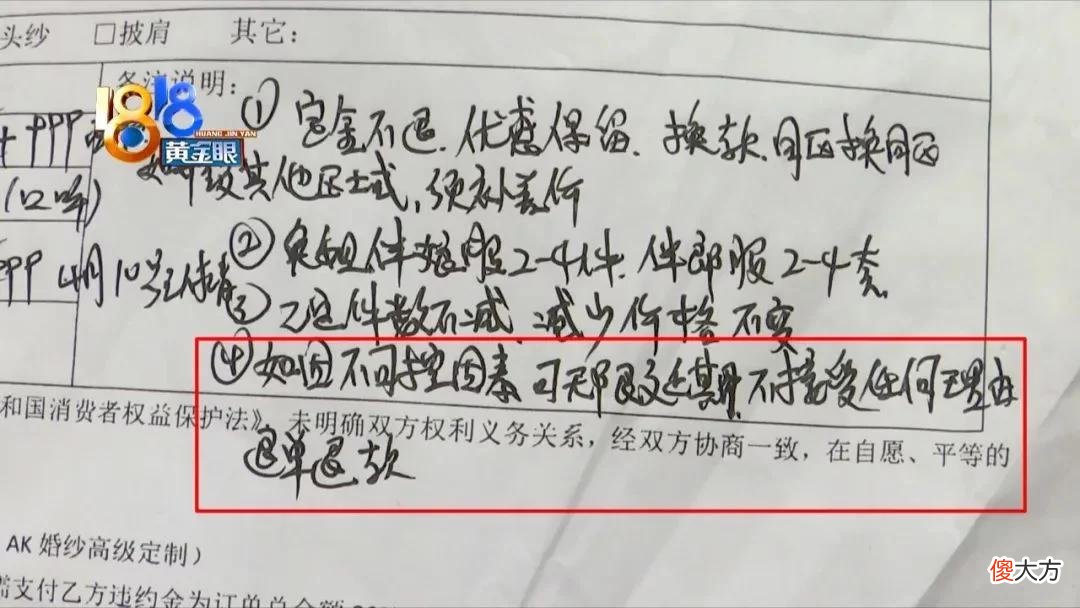 头纱 □披肩 其它：
备注说明：
1818
HUANG JIN YAN
黄金眼
① 定金不退、优惠保留、换款、同区换同区
其他区士式，须补差价
(口头)
② 伴娘服2-4件、伴郎服2-4套
999 4月10号
③ 件数不减、减少价格不变
④ 如因不可控因素可无限改延期、不接受任何理由
和国消费者权益保护法》，未明确双方权利义务关系，经双方协商一致，在自愿、平等的
退单退款
AK 婚纱高级定制）
需支付乙方违约金为订单总金额
傻大方